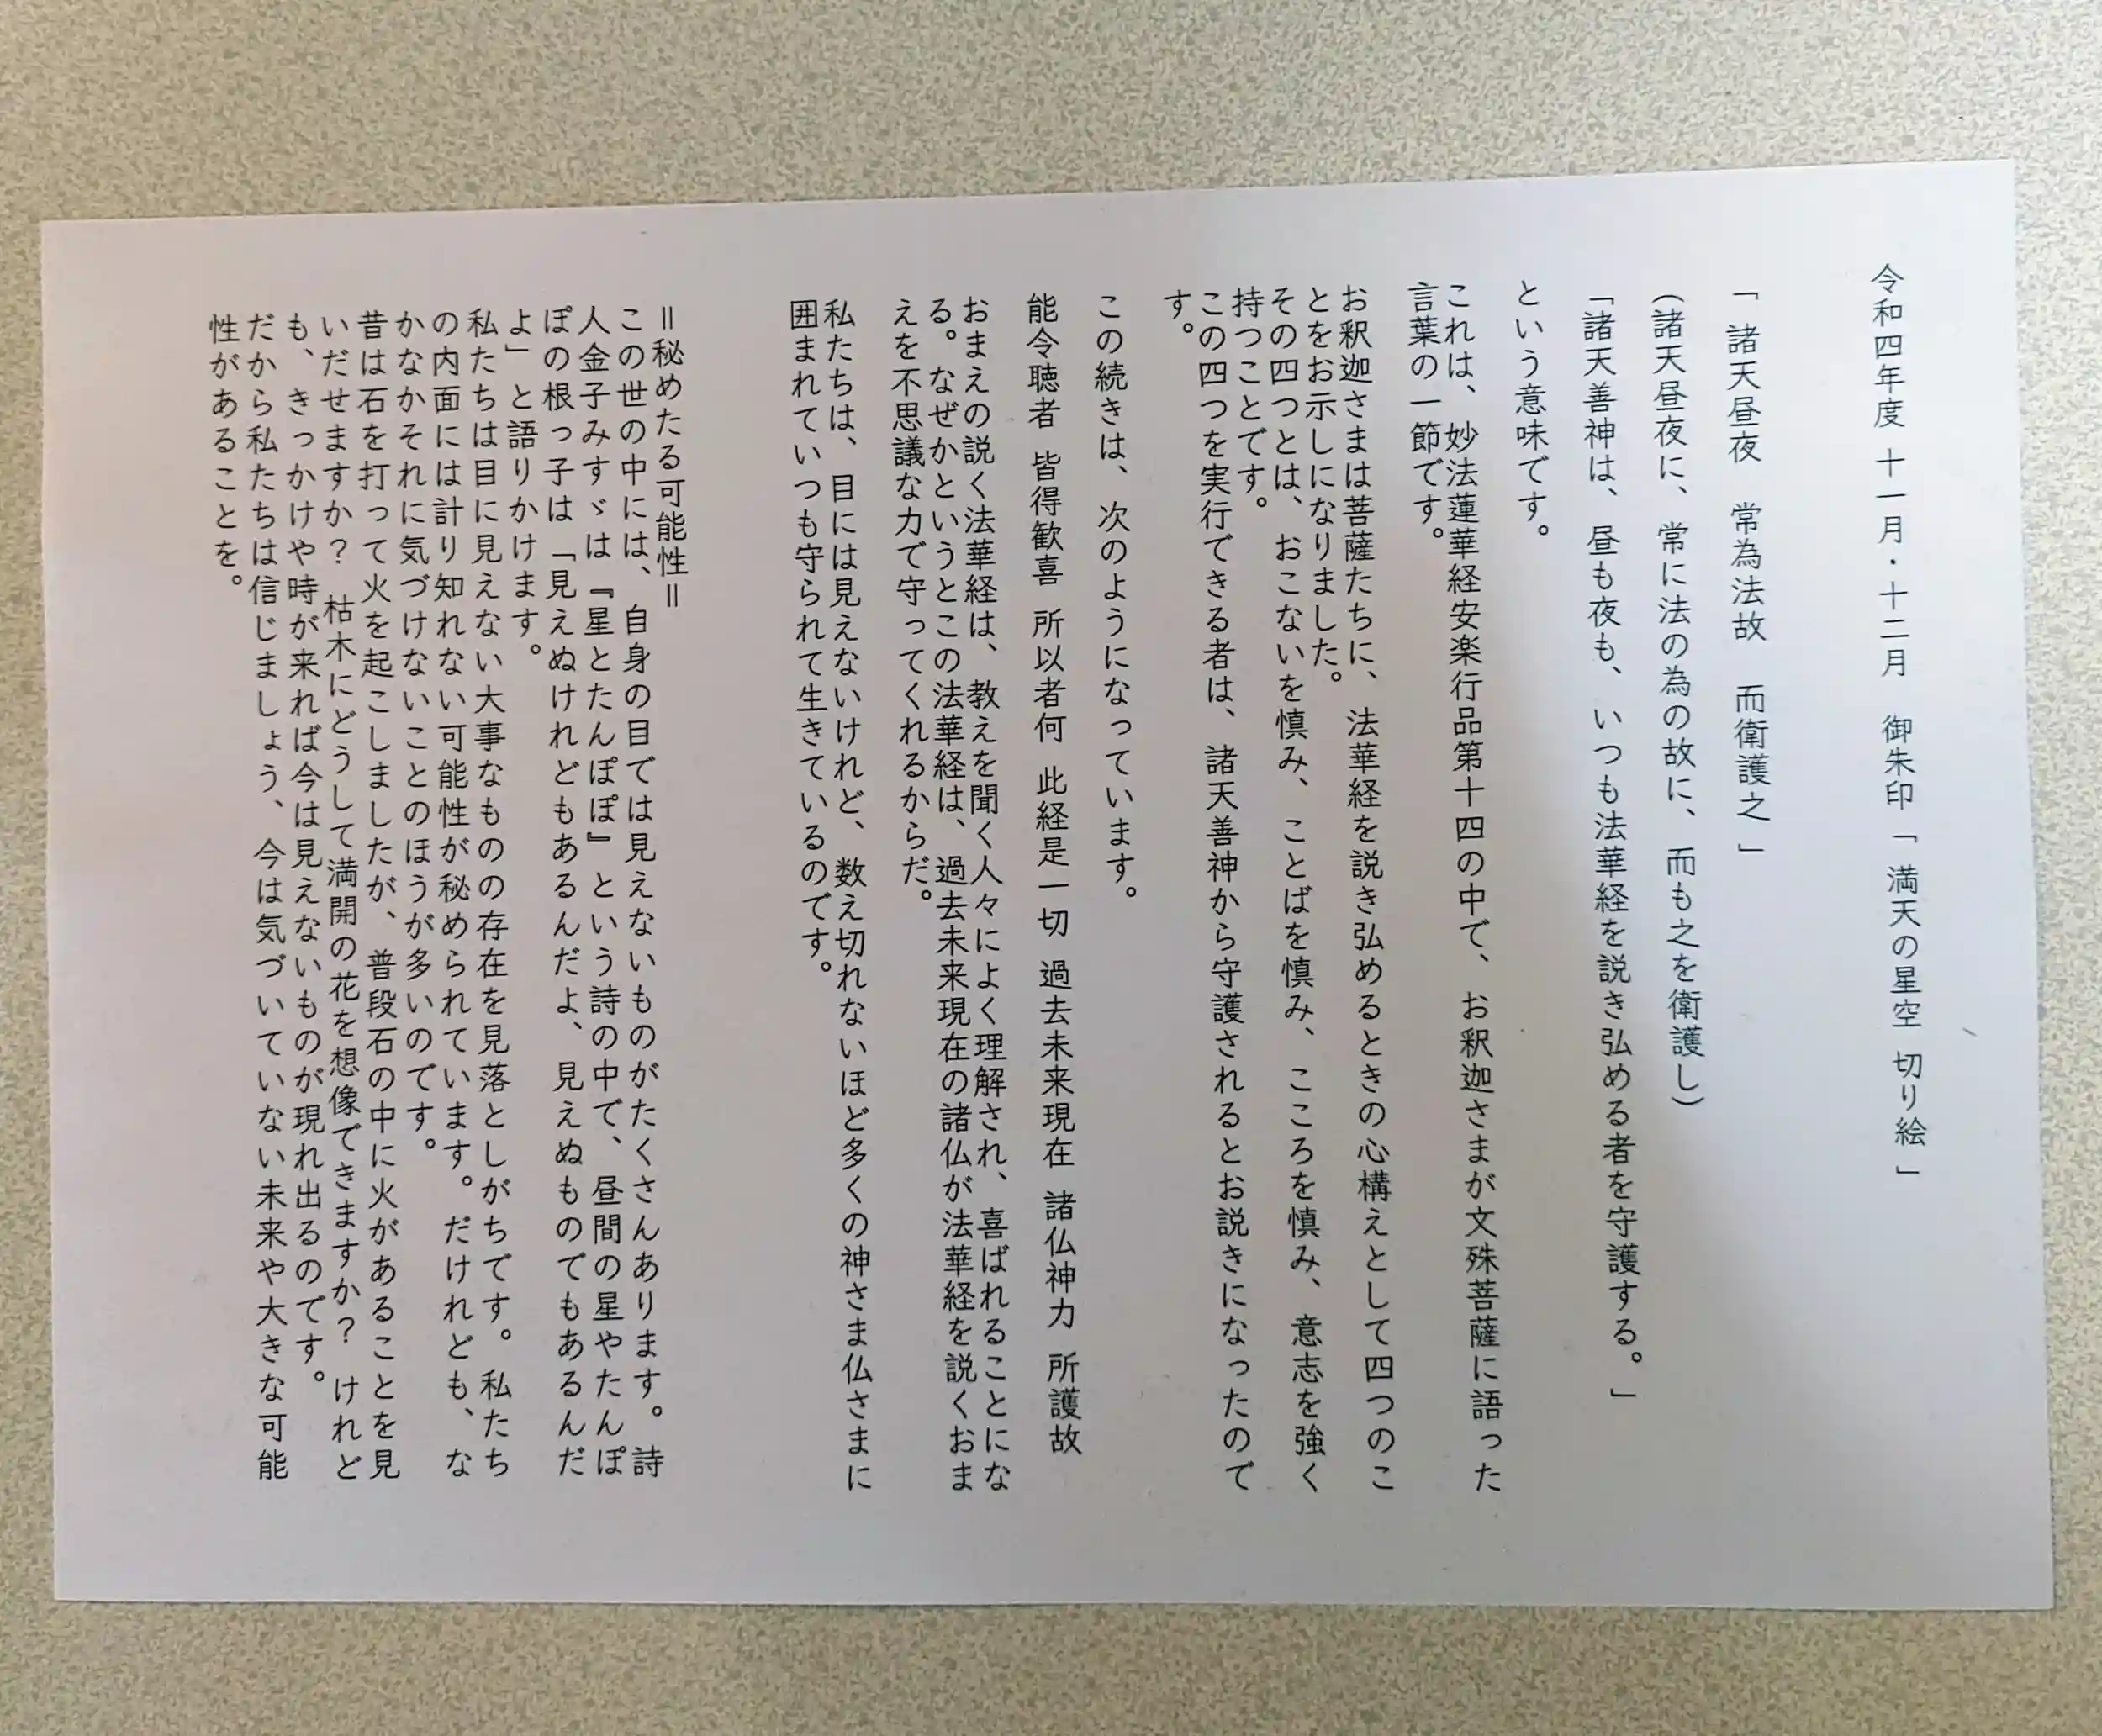 令和四年度 十一月・十二月 御朱印「満天の星空 切り絵」
「諸天昼夜 常為法故 而衛護之」
(諸天昼夜に、常に法の為の故に、而も之を衛護し)
「諸天善神は、昼も夜も、いつも法華経を説き弘める者を守護する。」
という意味です。
これは、妙法蓮華経安楽行品第十四の中で、お釈迦さまが文殊菩薩に語った
言葉の一節です。
お釈迦さまは菩薩たちに、法華経を説き弘めるときの心構えとして四つのこ
とをお示しになりました。
その四つとは、おこないを慎み、ことばを慎み、こころを慎み、意志を強く
持つことです。
この四つを実行できる者は、諸天善神から守護されるとお説きになったので
す。
この続きは、次のようになっています。
能令聴者 皆得歓喜 所以者何 此経是一切 過去未来現在 諸仏神力 所護故
おまえの説く法華経は、教えを聞く人々によく理解され、喜ばれることにな
る。なぜかというとこの法華経は、過去未来現在の諸仏が法華経を説くおま
えを不思議な力で守ってくれるからだ。
私たちは、目には見えないけれど、数え切れないほど多くの神さま仏さまに
囲まれていつも守られて生きているのです。
=秘めたる可能性=
この世の中には、自身の目では見えないものがたくさんあります。詩
人金子みすゞは『星とたんぽぽ』という詩の中で、昼間の星やたんぽ
ぽの根っ子は「見えぬけれどもあるんだよ、見えぬものでもあるんだ
よ」と語りかけます。
私たちは目に見えない大事なものの存在を見落としがちです。私たち
の内面には計り知れない可能性が秘められています。だけれども、な
かなかそれに気づけないことのほうが多いのです。
昔は石を打って火を起こしましたが、普段石の中に火があることを見
いだせますか? 枯木にどうして満開の花を想像できますか? けれど
も、きっかけや時が来れば今は見えないものが現れ出るのです。
だから私たちは信じましょう、今は気づいていない未来や大きな可能
性があることを。